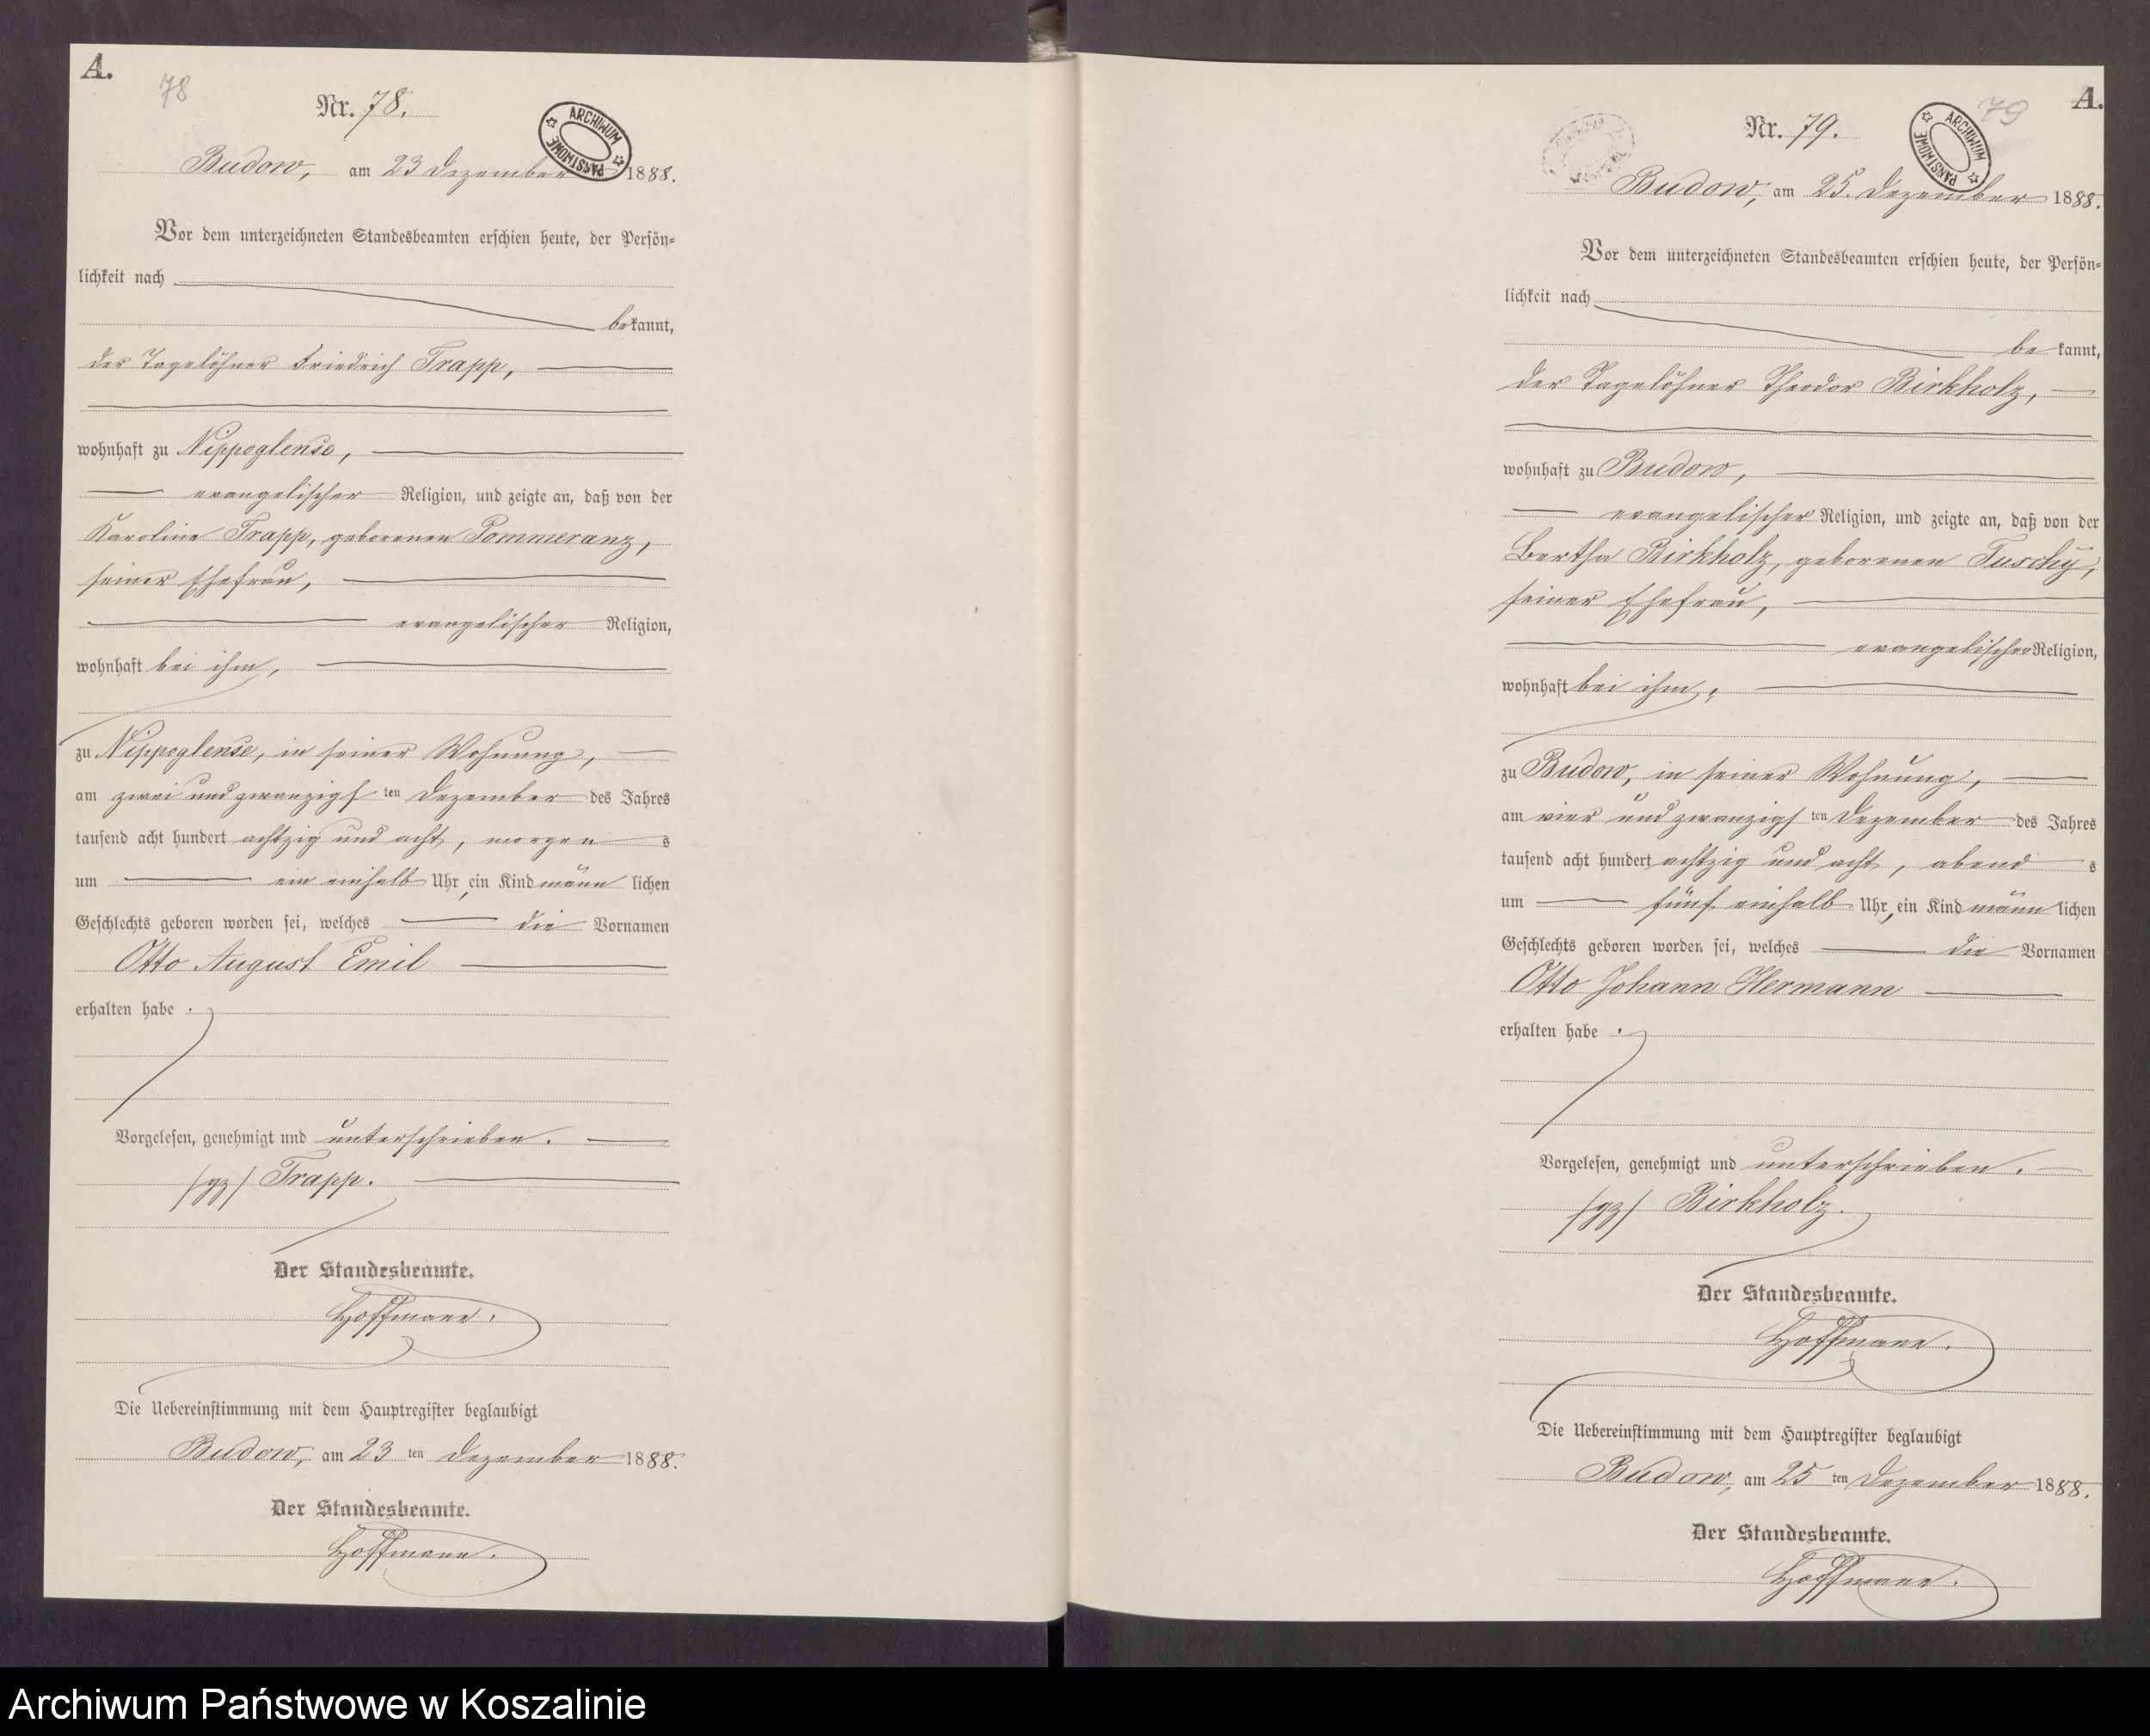 A.
78
Nr. 78.
ARCHIWUM PAŃSTWOWE
Budow, am 23 Dezember 1888.
Vor dem unterzeichneten Standesbeamten erschien heute, der Persön=
lichkeit nach
bekannt,
der Tagelöhner Friedrich Trapp,
wohnhaft zu Nippoglense,
evangelischer Religion, und zeigte an, daß von der
Karoline Trapp, geborenen Pommeranz,
seiner Ehefrau,
evangelischer Religion,
wohnhaft bei ihm,
zu Nippoglense, in seiner Wohnung,
am zwei und zwanzigsten Dezember des Jahres
tausend acht hundert achtzig und acht, morgens
um ein einhalb Uhr, ein Kind männlichen
Geschlechts geboren worden sei, welches die Vornamen
Otto August Emil
erhalten habe.
Vorgelesen, genehmigt und unterschrieben.
/gz/ Trapp.
Der Standesbeamte.
Hoffmann.
Die Uebereinstimmung mit dem Hauptregister beglaubigt
Budow, am 23 ten Dezember 1888.
Der Standesbeamte.
Hoffmann.
A.
79
Nr. 79.
ARCHIWUM PAŃSTWOWE
Budow, am 25. Dezember 1888.
Vor dem unterzeichneten Standesbeamten erschien heute, der Persön=
lichkeit nach
bekannt,
der Tagelöhner Theodor Birkholz,
wohnhaft zu Budow,
evangelischer Religion, und zeigte an, daß von der
Bertha Birkholz, geborenen Tuschy,
seiner Ehefrau,
evangelischer Religion,
wohnhaft bei ihm,
zu Budow, in seiner Wohnung,
am vier und zwanzigsten Dezember des Jahres
tausend acht hundert achtzig und acht, abends
um fünf einhalb Uhr, ein Kind männlichen
Geschlechts geboren worden sei, welches die Vornamen
Otto Johann Hermann
erhalten habe.
Vorgelesen, genehmigt und unterschrieben.
/gz/ Birkholz.
Der Standesbeamte.
Hoffmann.
Die Uebereinstimmung mit dem Hauptregister beglaubigt
Budow, am 25 ten Dezember 1888.
Der Standesbeamte.
Hoffmann.
Archiwum Państwowe w Koszalinie